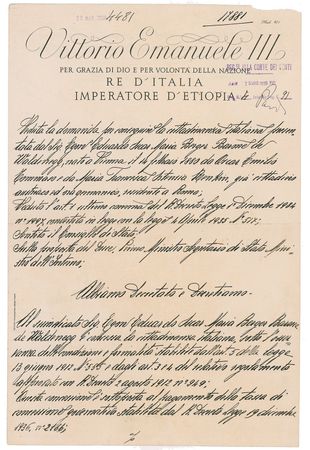 4481
17881
Vittorio Emanuele III
PER GRAZIA DI DIO E PER VOLONTÀ DELLA NAZIONE
RE D'ITALIA
IMPERATORE D'ETIOPIA
Vista la domanda per conseguire la cittadinanza italiana presen-
tata dal Sig. Egon Eduardo Lucas Maria Berger Barone de
Waldenegg, nato a Vienna il 14 1880 da Oscar Emilio
e da Maria Antonia già cittadino
austriaco ed ora germanico, residente a Roma;
Visto l'art. ultimo comma del R. Decreto Legge 1 Dicembre 1934
n. 1997, convertito in legge con la legge 4 Aprile 1935 N. 517;
Sentito il Consiglio di Stato;
Sulla proposta del Duce, Primo Ministro Segretario di Stato, Mini-
stro dell'Interno;
Abbiamo Decretato e Decretiamo:
Al summenzionato Sig. Egon Eduardo Lucas Maria Berger Barone
de Waldenegg è concessa la cittadinanza italiana, sotto l'osser-
vanza delle condizioni e formalità stabilite dall'art. 5 della legge
13 giugno 1912 N. 555 e dagli art. 3 e 4 del relativo regolamento
approvato con R. Decreto 2 agosto 1912 n. 949.
Questa concessione è sottoposta al pagamento della tassa di
concessione governativa stabilita dal R. Decreto Legge 19 dicembre
1936, n. 2166;